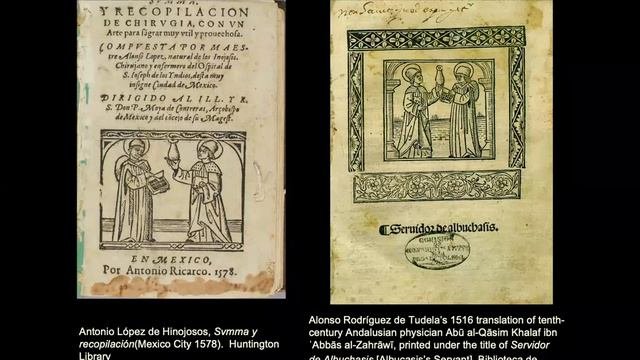 SVMMA,
Y RECOPILACION
DE CHIRVGIA, CON VN
Arte para sagrar muy vtil y prouechosa.
COMPVESTA POR MAES-
tre Alonso Lopez, natural de los Inojosos.
Chirujano y enfermero del Ospital de
S. Ioseph de los Yndios, desta muy
insigne Ciudad de Mexico.
DIRIGIDO AL ILL. Y R.
S. Don P. Moya de Contreras, Arçobispo
de Mexico y del cõcejo de su Magest.
EN MEXICO,
Por Antonio Ricardo. 1578.
Seruidor de albuchasis.
Antonio López de Hinojosos, Svmma y
recopilación(Mexico City 1578). Huntington
Library
Alonso Rodríguez de Tudela's 1516 translation of tenth-
century Andalusian physician Abū al-Qāsim Khalaf ibn
'Abbās al-Zahrāwī, printed under the title of Servidor
de Albuchasis [Albucasis's Servant]. Biblioteca de